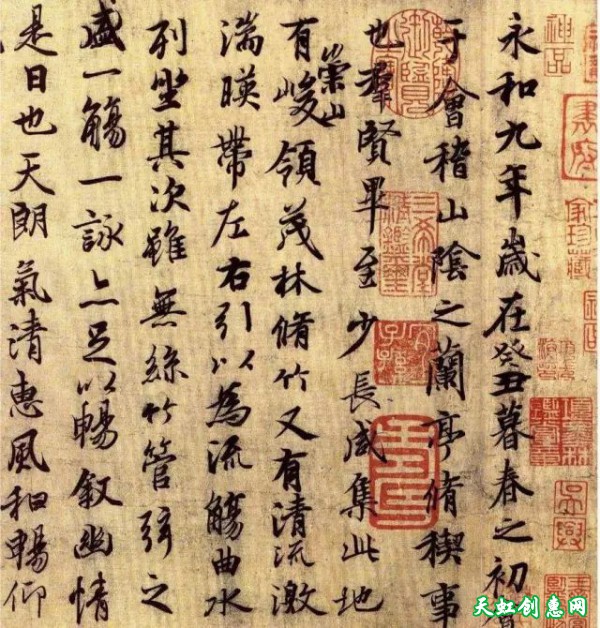 永和九年歲在癸丑暮春之初會
于會稽山陰之蘭亭脩稧事
也羣賢畢至少長咸集此地
有崇山峻領茂林脩竹又有清流激
湍暎帶左右引以為流觴曲水
列坐其次雖無絲竹管弦之
盛一觴一詠亦足以暢敘幽情
是日也天朗氣清惠風和暢仰
神品
家珍藏
三希堂精鑑璽
宜子孫
天虹创惠网